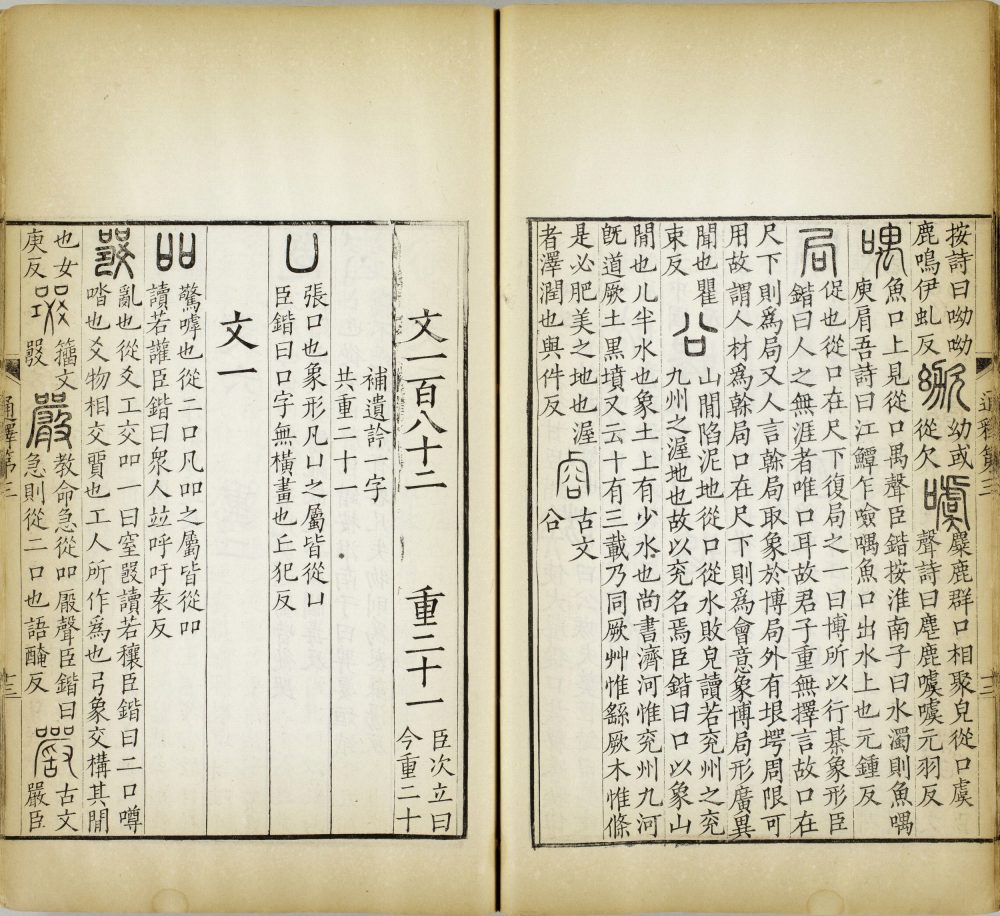 按詩曰呦呦
鹿鳴伊虬反 幼或從欠 麌鹿群口相聚皃從口虞
聲詩曰麀鹿噳噳元羽反
喁 魚口上見從口禺聲臣鍇按淮南子曰水濁則魚喁
庾肩吾詩曰江鱏乍噞喁魚口出水上也元鍾反
局 促也從口在尺下復局之一曰博所以行棊象形臣
鍇曰人之無涯者唯口耳故君子重無擇言故口在
尺下則爲局又人言幹局取象於博局外有垠堮周限可
用故謂人材爲幹局口在尺下則爲會意象博局形廣異
聞也瞿束反 㕣 山閒陷泥地從口從水敗皃讀若兖州之兖
九州之渥地也故以兖名焉臣鍇曰口以象山
閒也儿半水也象土上有少水也尚書濟河惟兖州九河
旣道厥土黑墳又云十有三載乃同厥艸惟繇厥木惟條
是必肥美之地也渥者澤潤也與件反 古文㕣
通釋第三 十三
文一百八十二 重二十一 臣次立曰今重二十
補遺誝一字共重二十一
凵 張口也象形凡凵之屬皆從凵
臣鍇曰口字無橫畫也丘犯反
文一
吅 驚嘑也從二口凡吅之屬皆從吅
讀若讙臣鍇曰衆人竝呼吁袁反
㗊 亂也從爻工交吅一曰窒㗊讀若穰臣鍇曰二口噂
喒也爻物相交質也工人所作爲也弓象交構其閒
也女庚反 籀文 嚴 教命急從吅厰聲臣鍇曰
急則從二口也語醃反 古文嚴臣
通釋第三 十三